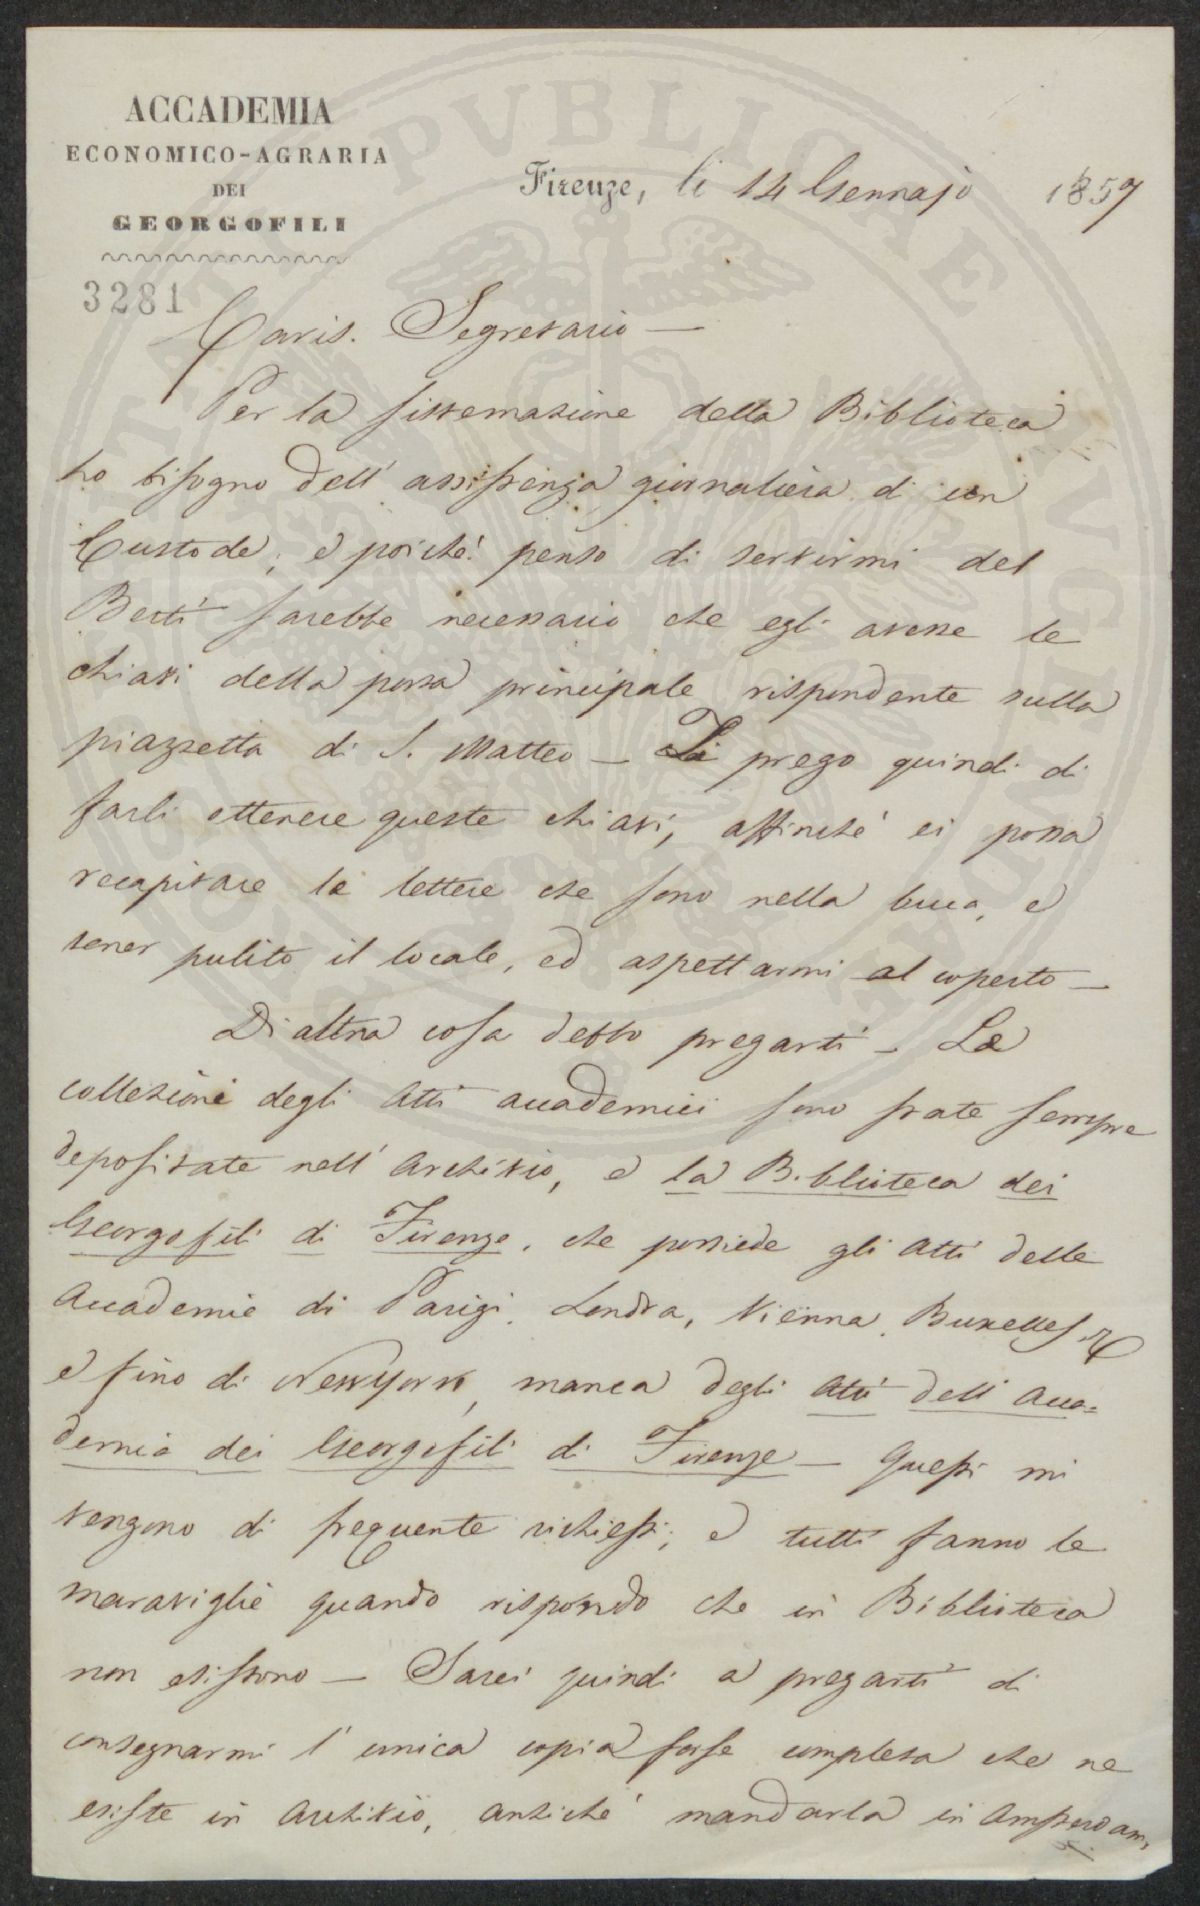 ACCADEMIA
ECONOMICO-AGRARIA
DEI
GEORGOFILI
3281
Firenze, li 14 Gennajo 1857
Caris. Segretario —
Per la sistemazione della Biblioteca
ho bisogno dell' assistenza giornaliera di un
Custode; e poiché penso di servirmi del
Berti sarebbe necessario che egli avesse le
chiavi della porta principale rispondente sulla
piazzetta di S. Matteo — Ti prego quindi di
farli ottenere queste chiavi, affinché ei possa
recapitare le lettere che sono nella buca, e
tener pulito il locale, ed aspettarmi al coperto —
Di altra cosa debbo pregarti — Le
collezioni degli Atti accademici sono state sempre
depositate nell' Archivio, e la Biblioteca dei
Georgofili di Firenze, che possiede gli Atti delle
Accademie di Parigi, Londra, Vienna, Buxelles,
e fino di NewYork, manca degli Atti dell' Acca=
demia dei Georgofili di Firenze — Questi mi
vengono di frequente richiesti; e tutti fanno le
maraviglie quando rispondo che in Biblioteca
non esistono — Sarei quindi a pregarti di
consegnarmi l' unica copia forse completa che ne
esiste in Archivio, anziché mandarla in Amsterdam,